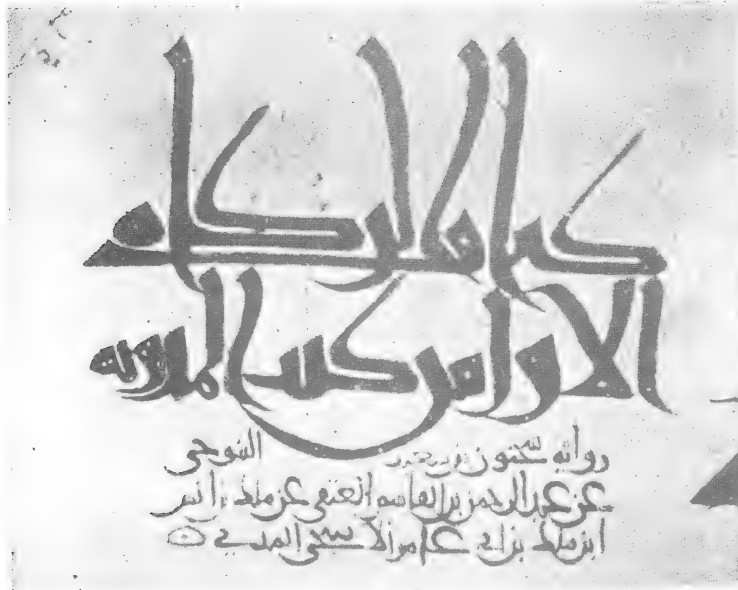 كتاب الزكاة
الأول من كتب المدونة
رواية سحنون بن سعيد التنوخي
عن عبد الرحمن بن القاسم العتقي عن ملك بن انس
ابن ملك بن ابي عامر الاصبحي المدني